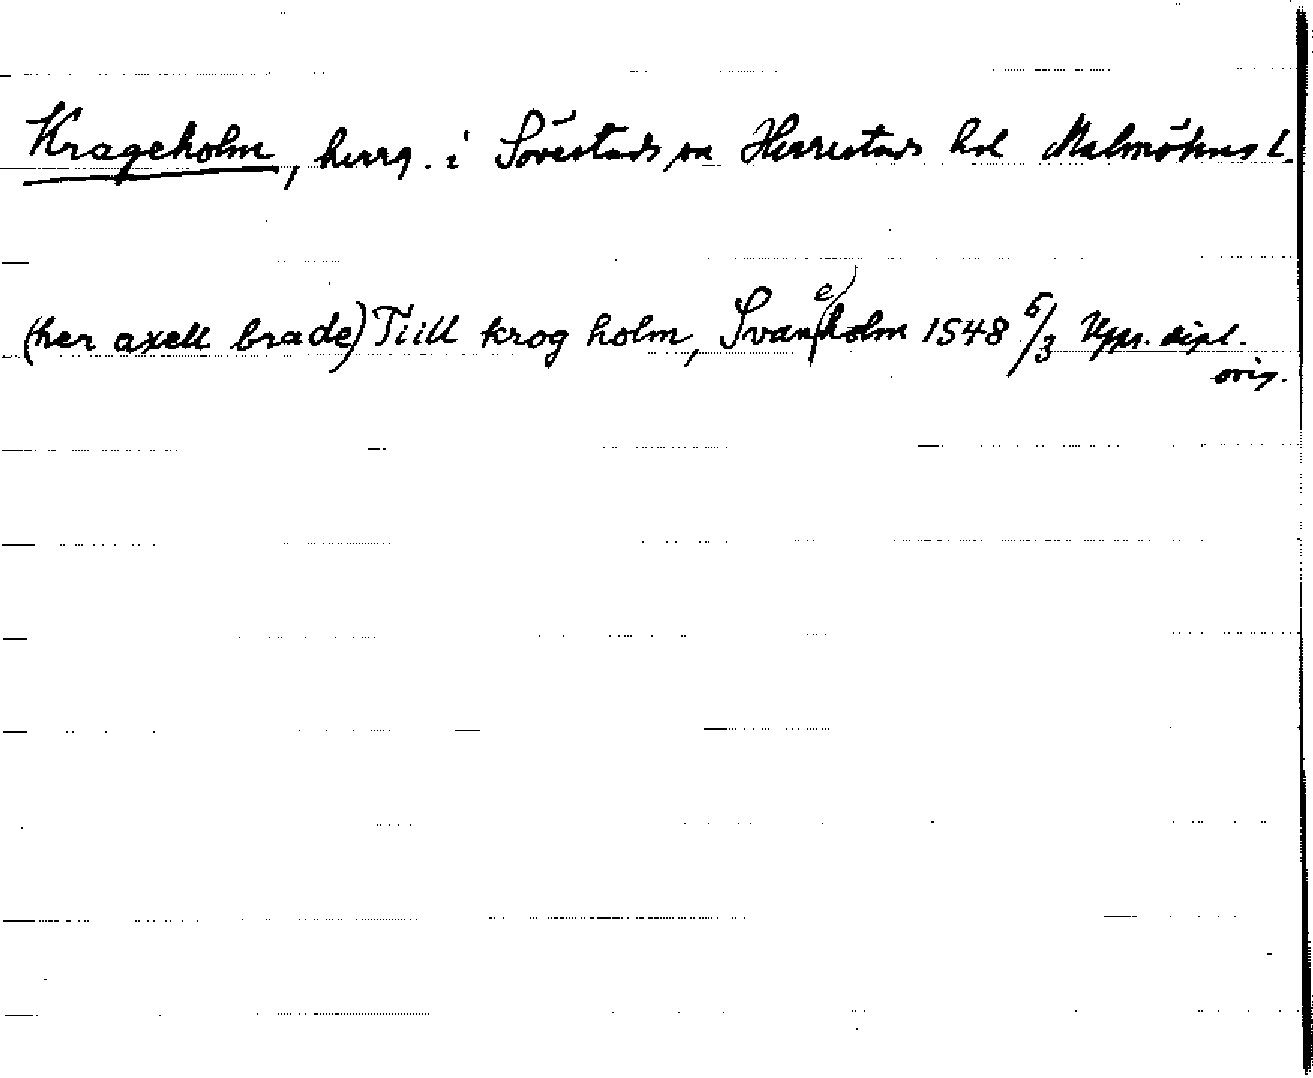 Krageholm, herrg. i Sövestads sn Herrestads hd Malmöhus l.
(her axell brade) Tiill krog holm, Svaneholm 1548 6/3 Upps. dipl.
orig.